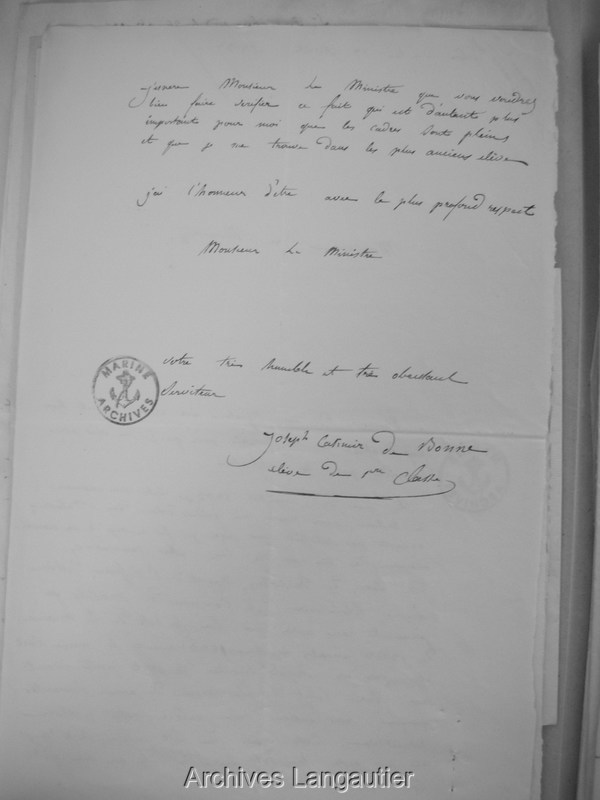 j'espere Monsieur Le Ministre que vous voudrez
bien faire verifier ce fait qui est d'autant plus
important pour moi que les cadres sont pleins
et que je me trouve dans les plus anciens eleve
j'ai l'honneur d'etre avec le plus profond respect
Monsieur Le Ministre
votre très humble et très obeissant
Serviteur
MARINE
ARCHIVES
Joseph Casimir de Bonne
eleve de 1ere Classe
Archives Langautier